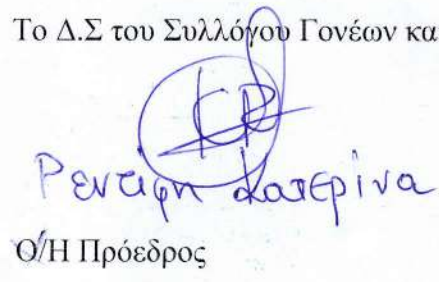 Το Δ.Σ του Συλλόγου Γονέων κα
Ρεντίφη Κατερίνα
Ο/Η Πρόεδρος